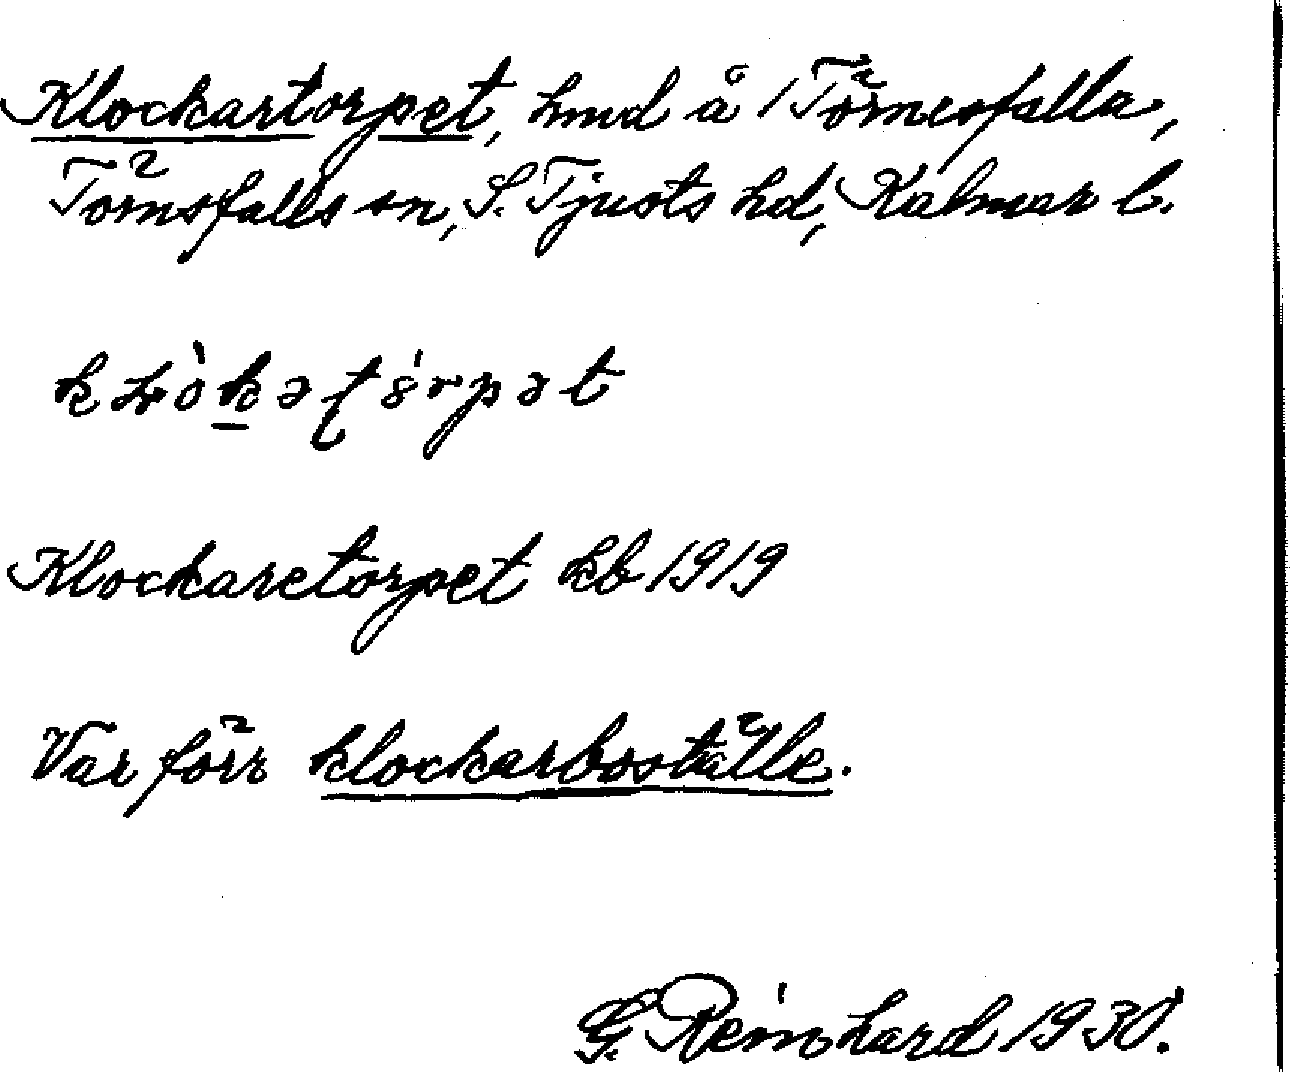 Klockartorpet, hmd å 1 Törnesfalla,
Törnsfalls sn, S. Tjusts hd, Kalmar l.
Klockaretorpet kb 1919
Var förr klockarboställe.
G. Reinhard 1930.